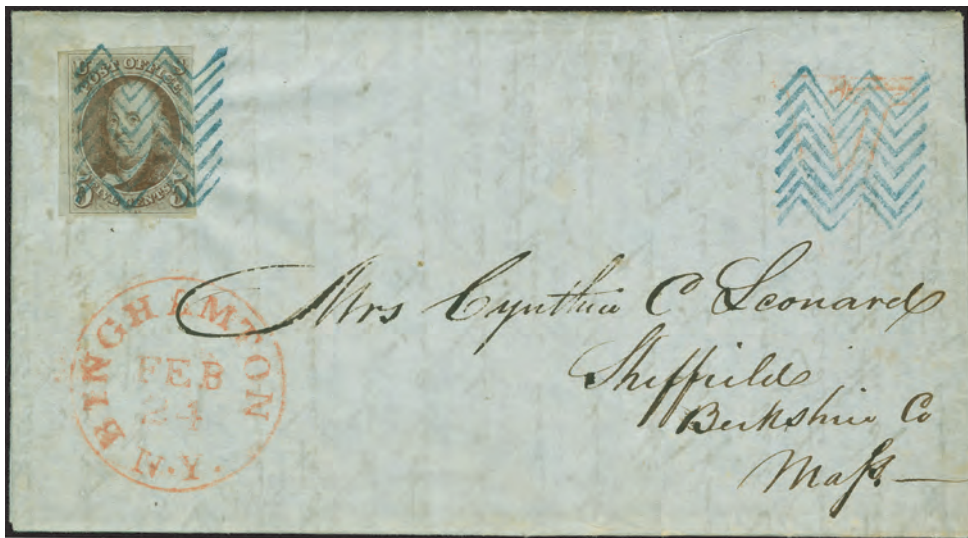 POST OFFICE
FIVE CENTS
5 5
BINGHAMTON
FEB
24
N.Y.
Mrs Cynthia C Leonard
Sheffield
Berkshire Co
Mass.